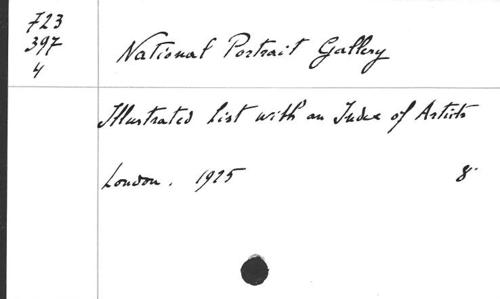 723
397
4
National Portrait Gallery
Illustrated List with an Index of Artists
London. 1925
8°